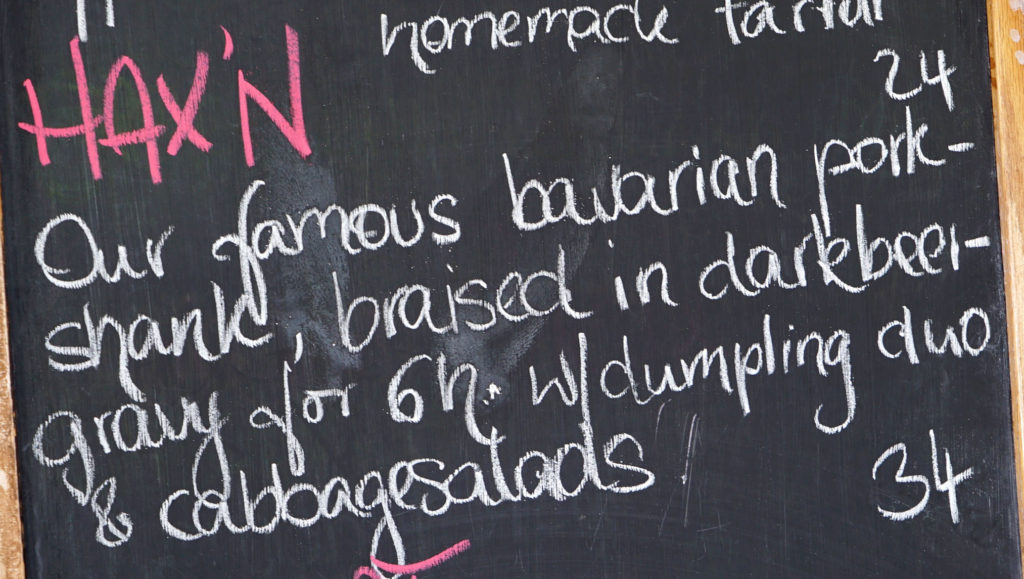 homemade tartar
24
HAX'N
Our famous bavarian pork-
shank, braised in darkbeer-
gravy for 6h. w/dumpling duo
& cabbagesalads
34